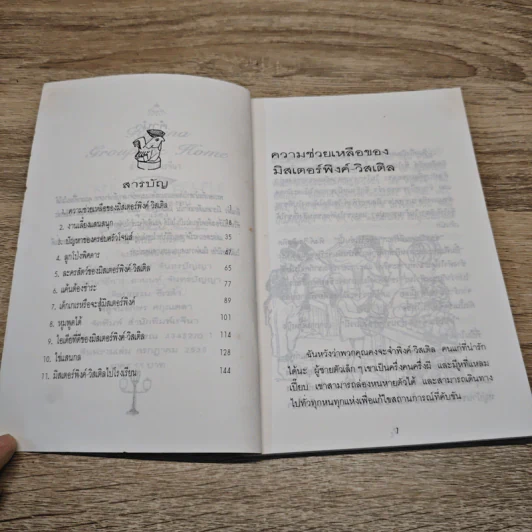 สารบัญ
1. ความช่วยเหลือของมิสเตอร์พิงค์-วิสเติล
2. งานเลี้ยงแสนสนุก 16
3. ปัญหาของครอบครัวโจนส์ 35
4. ลูกโป่งพิศดาร 47
5. ละครสัตว์ของมิสเตอร์พิงค์-วิสเติล 65
6. แค้นต้องชำระ 77
7. เด็กเกเรหรือจะสู้มิสเตอร์พิงค์ 89
8. หูพูดได้ 101
9. ไอเดียที่ดีของมิสเตอร์พิงค์-วิสเติล 114
10. ไข่แสนกล 128
11. มิสเตอร์พิงค์-วิสเติลไปโรงเรียน 144
ความช่วยเหลือของ
มิสเตอร์พิงค์-วิสเติล
ฉันหวังว่าพวกคุณคงจะจำพิงค์-วิสเติล คนแก่ที่น่ารัก
ได้นะ ผู้ชายตัวเล็กๆ เขาเป็นครึ่งคนครึ่งผี และมีหูที่แหลม
เปี๊ยบ เขาสามารถล่องหนหายตัวได้ และสามารถเดินทาง
ไปทั่วทุกหนทุกแห่งเพื่อแก้ไขสถานการณ์ที่คับขัน